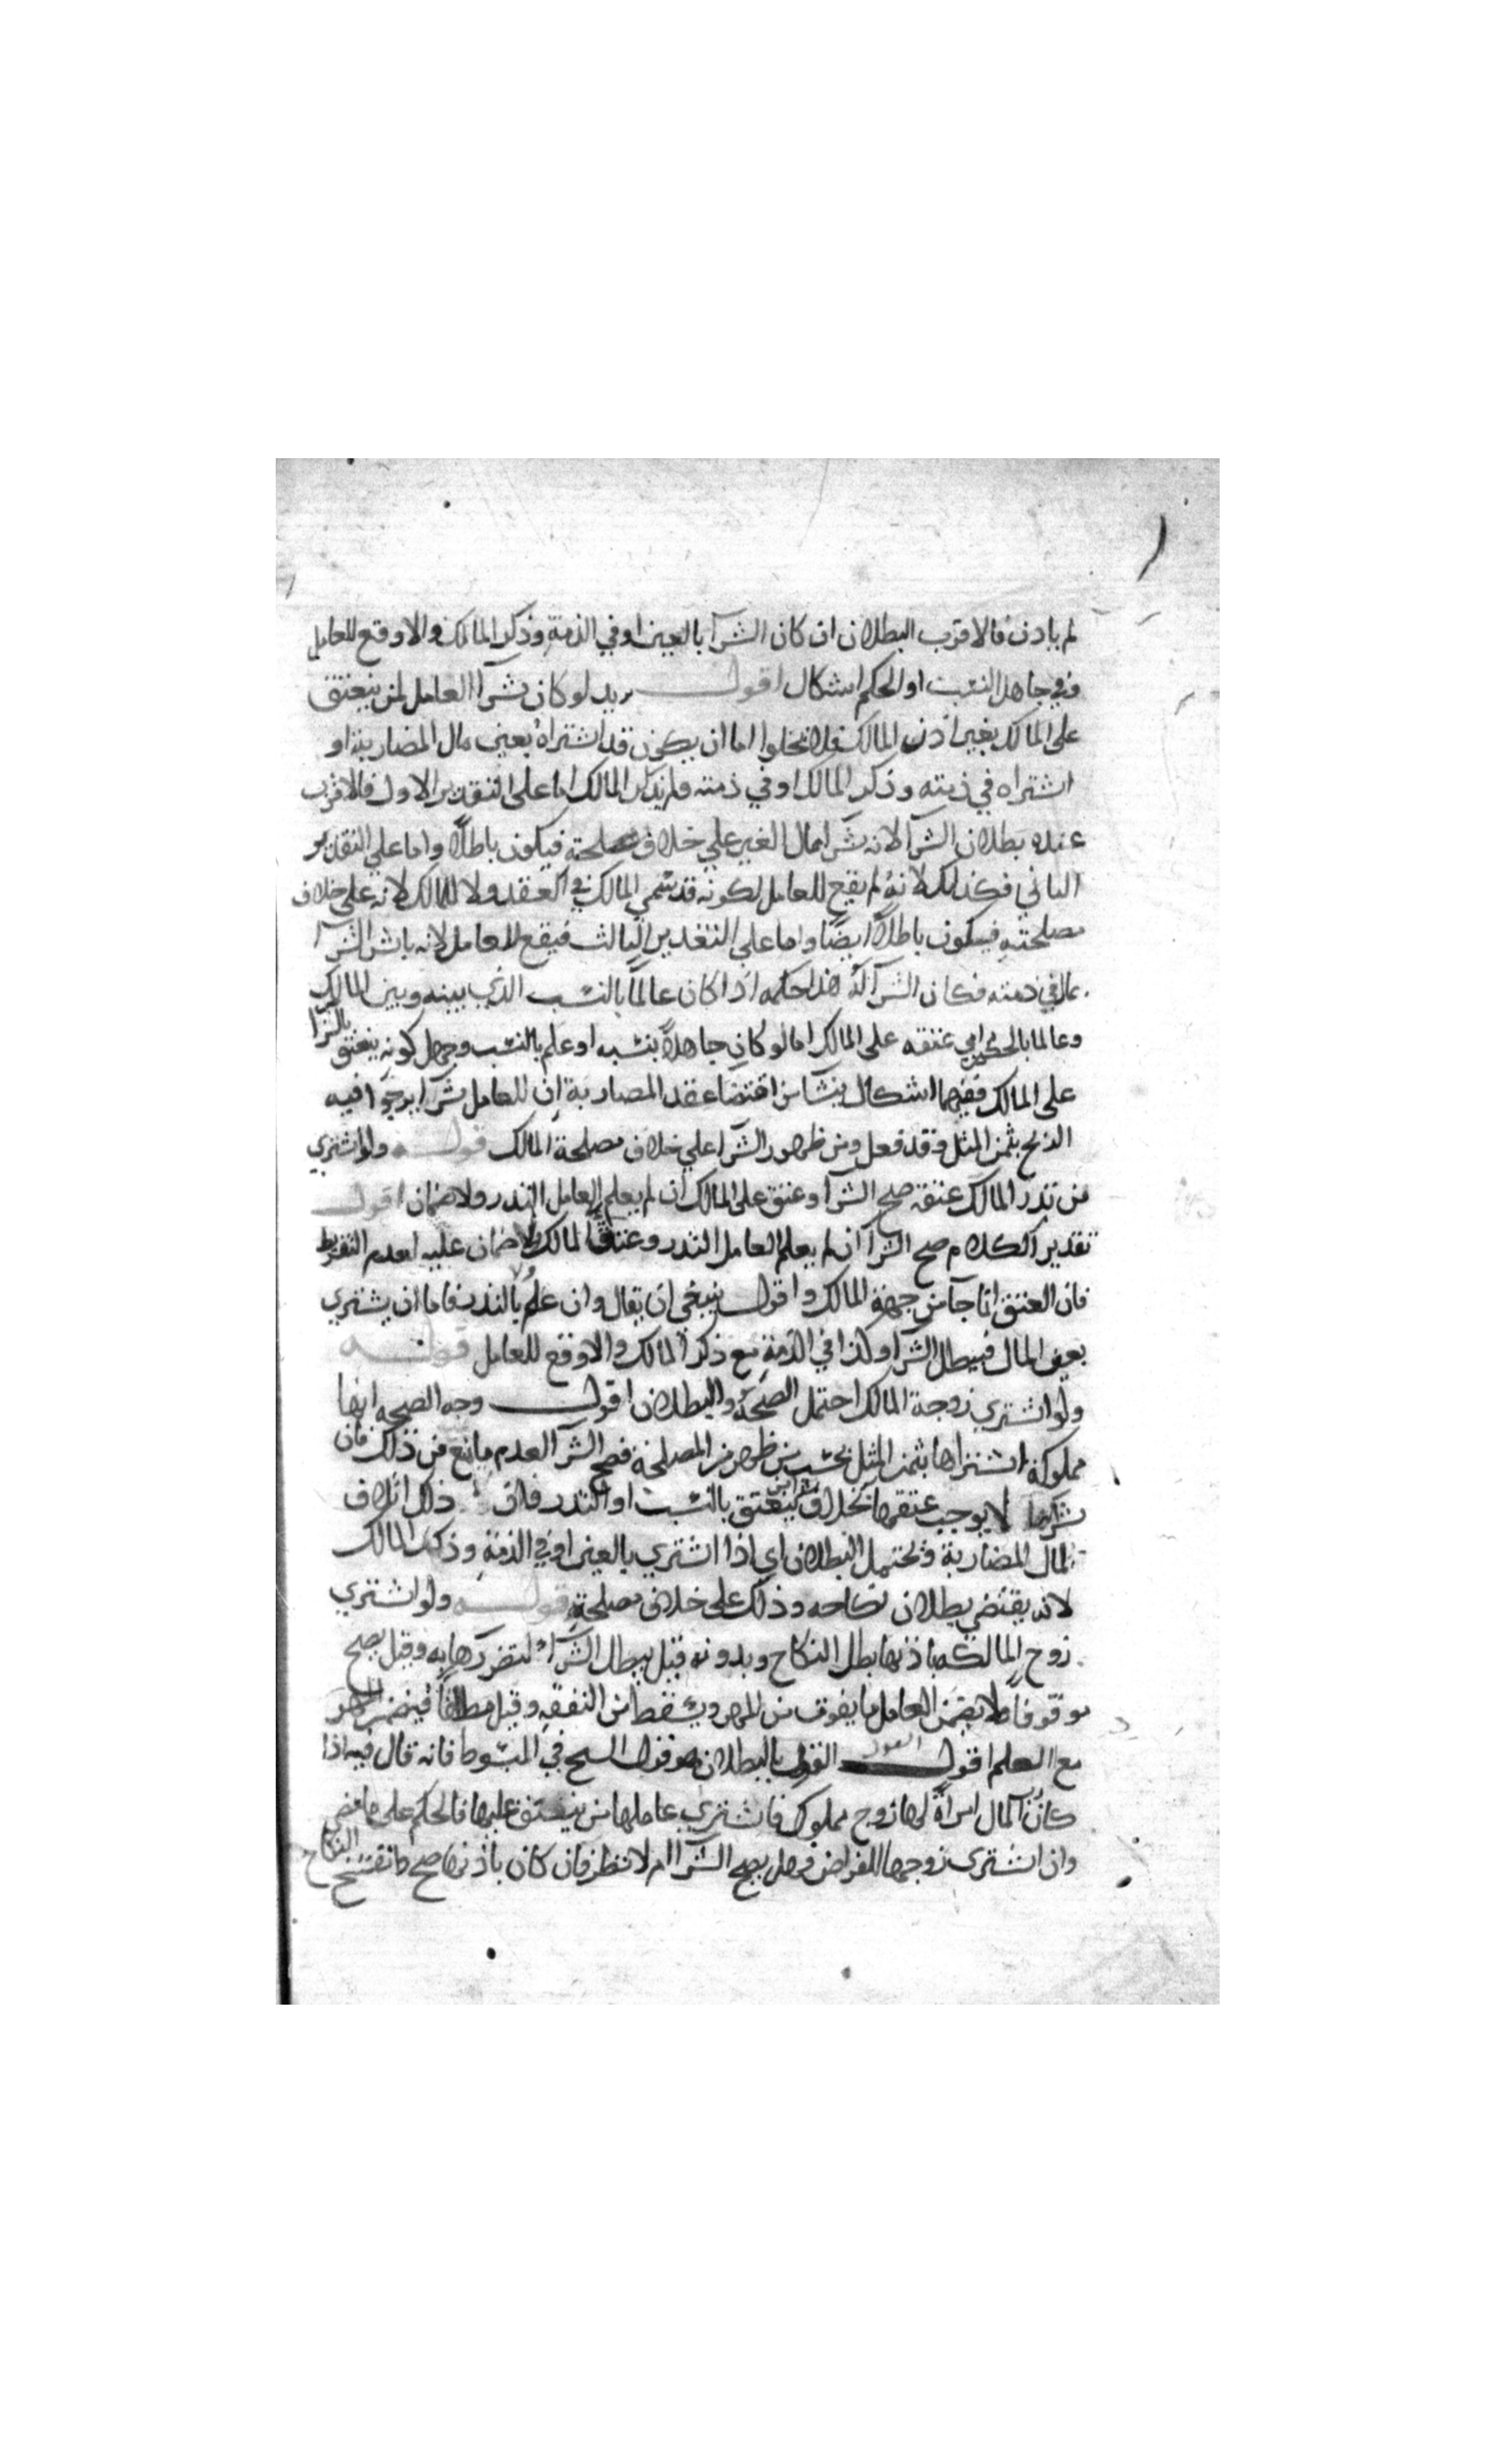 لم يأذن فالاقرب البطلان ان كان الشرآ بالعين او في الذمة وذكر المالك والا وقع للعامل
وفي جاهل النسب او الحكم اشكال اقول يريد لو كان شرآ العامل لمن ينعتق
على المالك بغير اذن المالك فلا يخلوا اما ان يكون قد اشتراه بعين مال المضاربة او
اشتراه في ذمته وذكر المالك او في ذمته ولم يذكر المالك اما على التقدير الاول فالاقرب
عنده بطلان الشرآ لانه شرآ بمال الغير على خلاف مصلحته فيكون باطلا واما على التقدير
الثاني فكذلك لانه لم يقع للعامل لكونه قد سمى المالك في العقد ولا للمالك لانه على خلاف
مصلحته فيكون باطلا ايضا واما على التقدير الثالث فيقع للعامل لانه باشر الشرآ
بمال في ذمته فكان الشرآ له هذا حكمه اذا كان عالما بالنسب الذي بينه وبين المالك
وعالما بالحكم اي عتقه على المالك اما لو كان جاهلا بنسبه او علم بالنسب وجهل كونه ينعتق بالشرا
على المالك ففيهما اشكال ينشا من اقتضا عقد المضاربة ان للعامل شرآ ما يرجوا فيه
الربح بثمن المثل وقد فعل ومن ظهور الشرآ على خلاف مصلحة المالك قوله ولو اشتري
من نذر المالك عتقه صح الشرآ وعتق على المالك ان لم يعلم العامل النذر ولا ضمان اقول
تقدير الكلام صح الشرآ ان لم يعلم العامل النذر وعتق على المالك ولا ضمان عليه لعدم التفريط
فان العتق انما جآ من جهة المالك واقول ينبغي ان يقال وان علم بالنذر فاما ان يشتري
بعين المال فيبطل الشرآ وكذا في الذمة مع ذكر المالك والا وقع للعامل قوله
ولو اشتري زوجة المالك احتمل الصحة والبطلان اقول وجه الصحه انها
مملوكة اشتراها بثمن المثل بحسب من ظهر من المصلحة فصح الشرآ لعدم مانع من ذلك فان
شرآها لا يوجب عتقها بخلاف شرا من ينعتق بالنسب او النذر فان ذلك اتلاف
لمال المضاربة ويحتمل البطلان اي اذا اشتري بالعين او في الذمة وذكر المالك
لانه يقتضي بطلان نكاحه وذلك على خلاف مصلحته قوله ولو اشتري
زوج المالكه باذنها بطل النكاح وبدونه قيل يبطل الشرآ لتضررها به وقيل يصح
موقوفا فلا يضمن العامل ما يفوت من المهر ويسقط من النفقه وقيل مطلقا فيضمن المهر
مع العلم اقول القول بالبطلان هو قول الشيخ في المبسوط فانه قال فيه اذا
كان رب المال امرأة لها زوج مملوك فاشتري عاملها من ينعتق عليها فالحكم على ما مضى
وان اشترى زوجها للقراض فهل يصح الشرآ ام لا نظر فان كان باذنها صح وانفسخ النكاح